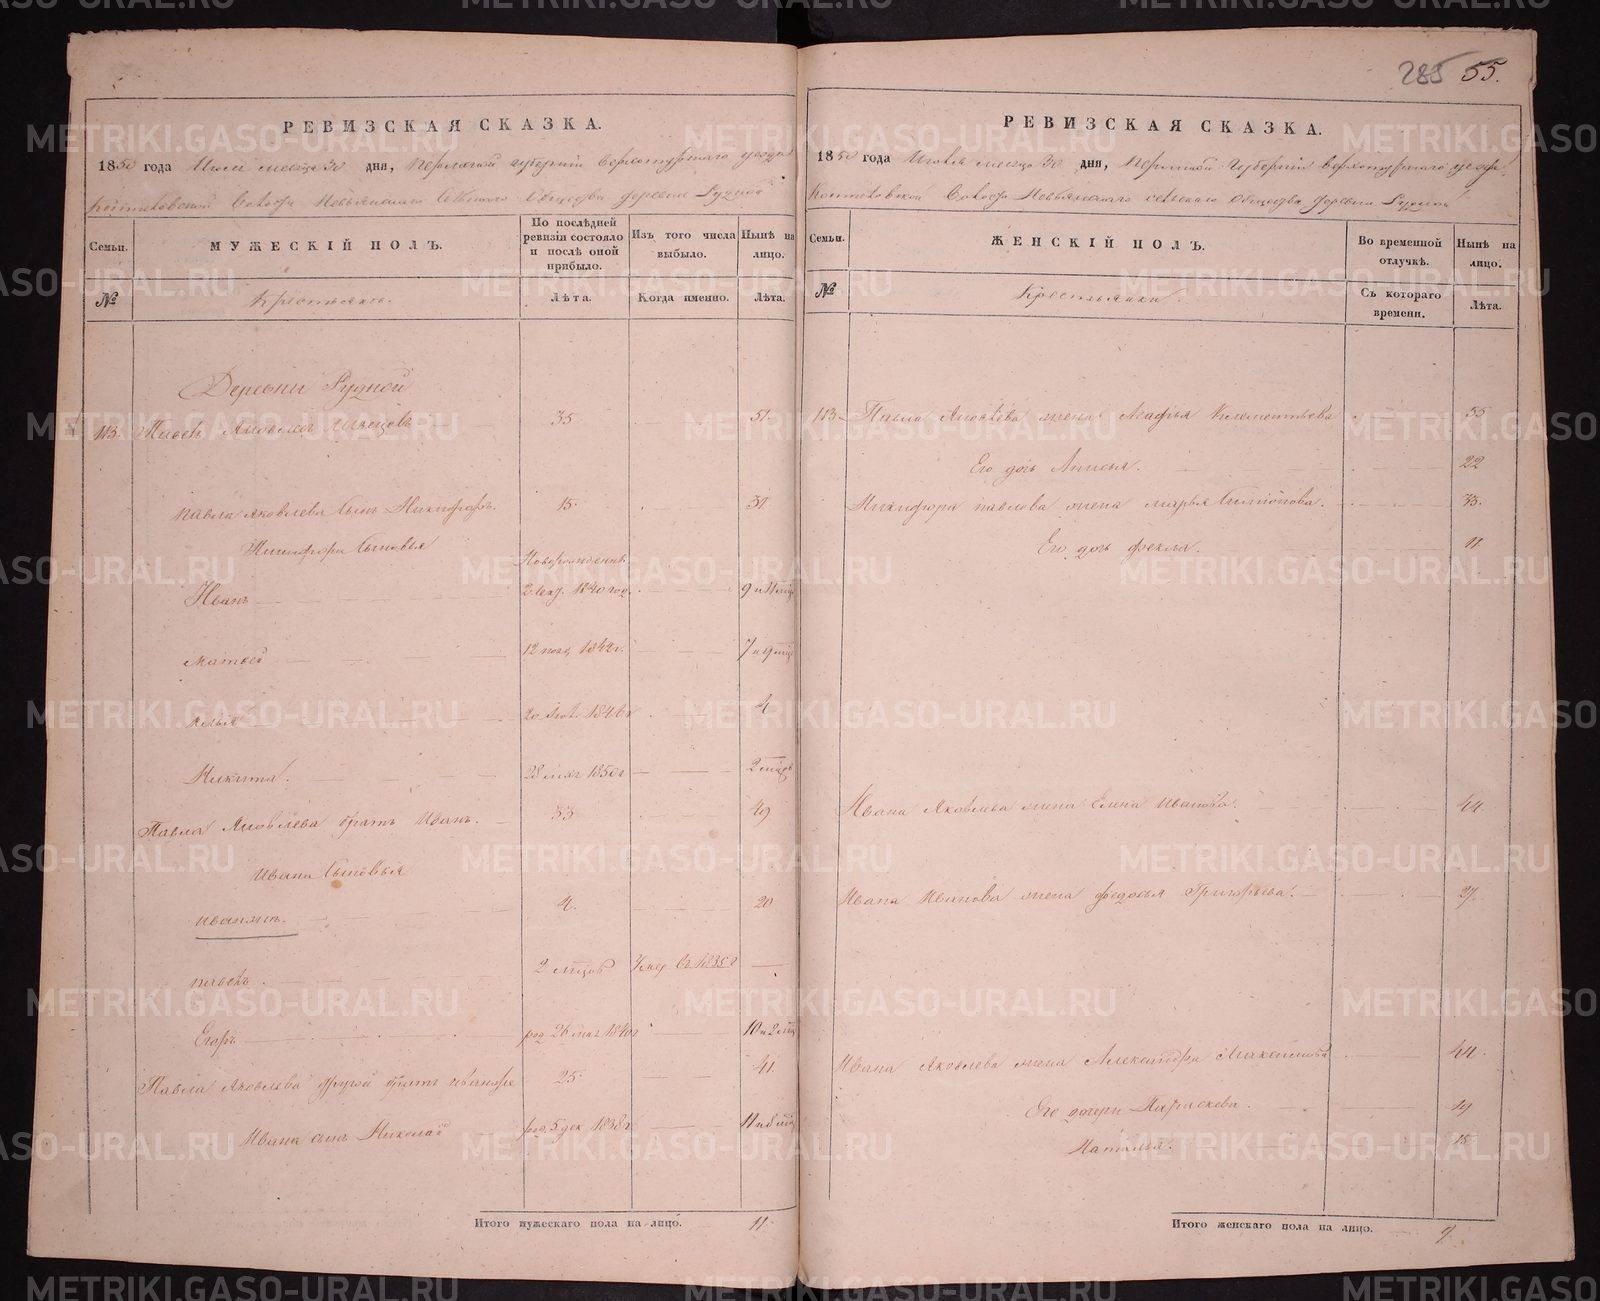 285 55.
РЕВИЗСКАЯ СКАЗКА.
1850 года Июня месяца 30 дня, Пермской губернии Верхотурскаго уезда
Сельскаго Общества деревни Рудной
Семьи. МУЖЕСКІЙ ПОЛЪ. По послѣдней ревизіи состояло и послѣ оной прибыло. Изъ того числа выбыло. Нынѣ на лицо.
№ Крестьянъ. Лѣта. Когда именно. Лѣта.
Деревни Рудной
113. Павелъ Яковлевъ 35 51
Павла Яковлева сынъ Никифоръ. 15 31
Никифора сыновья Новорожденные
Иванъ 1840 год. 9 и
Матвей 12 1842г. 7 и
Илья 20 1846г 4
Никита. 28 1850г 2 мѣсяцъ
Павла Яковлева братъ Иванъ. 33 49
Ивана сыновья
Иванъ 4. 20
Павелъ. 2 мѣсяцовъ Умер. въ 1835г
Егоръ род. 26 мая 1840г 10 и 2 мѣс
Павла Яковлева другой братъ Иванъ же 25 41
Ивана сынъ Николай род. 5 дек 1838г 11 и 6 мѣс
Итого мужескаго пола на лицо. 11
РЕВИЗСКАЯ СКАЗКА.
1850 года Июня месяца 30 дня, Пермской Губерніи Верхотурскаго уезда
сельскаго Общества деревни Рудной
Семьи. ЖЕНСКІЙ ПОЛЪ. Во временной отлучкѣ. Нынѣ на лицо.
№ Крестьянки. Съ котораго времени. Лѣта.
113. Павла Яковлева жена Агафья Климентьева 55
Его дочь Анисья. 22
Никифора Павлова жена Марья Симонова. 33.
Его дочь Фекла. 11
Ивана Яковлева жена Елена Иванова. 44
Ивана Иванова жена Федосья Григорьева. 27.
Ивана Яковлева жена Александра 44.
Его дочери Параскева. 19
Наталья. 15
Итого женскаго пола на лицо. 9
METRIKI.GASO-URAL.RU